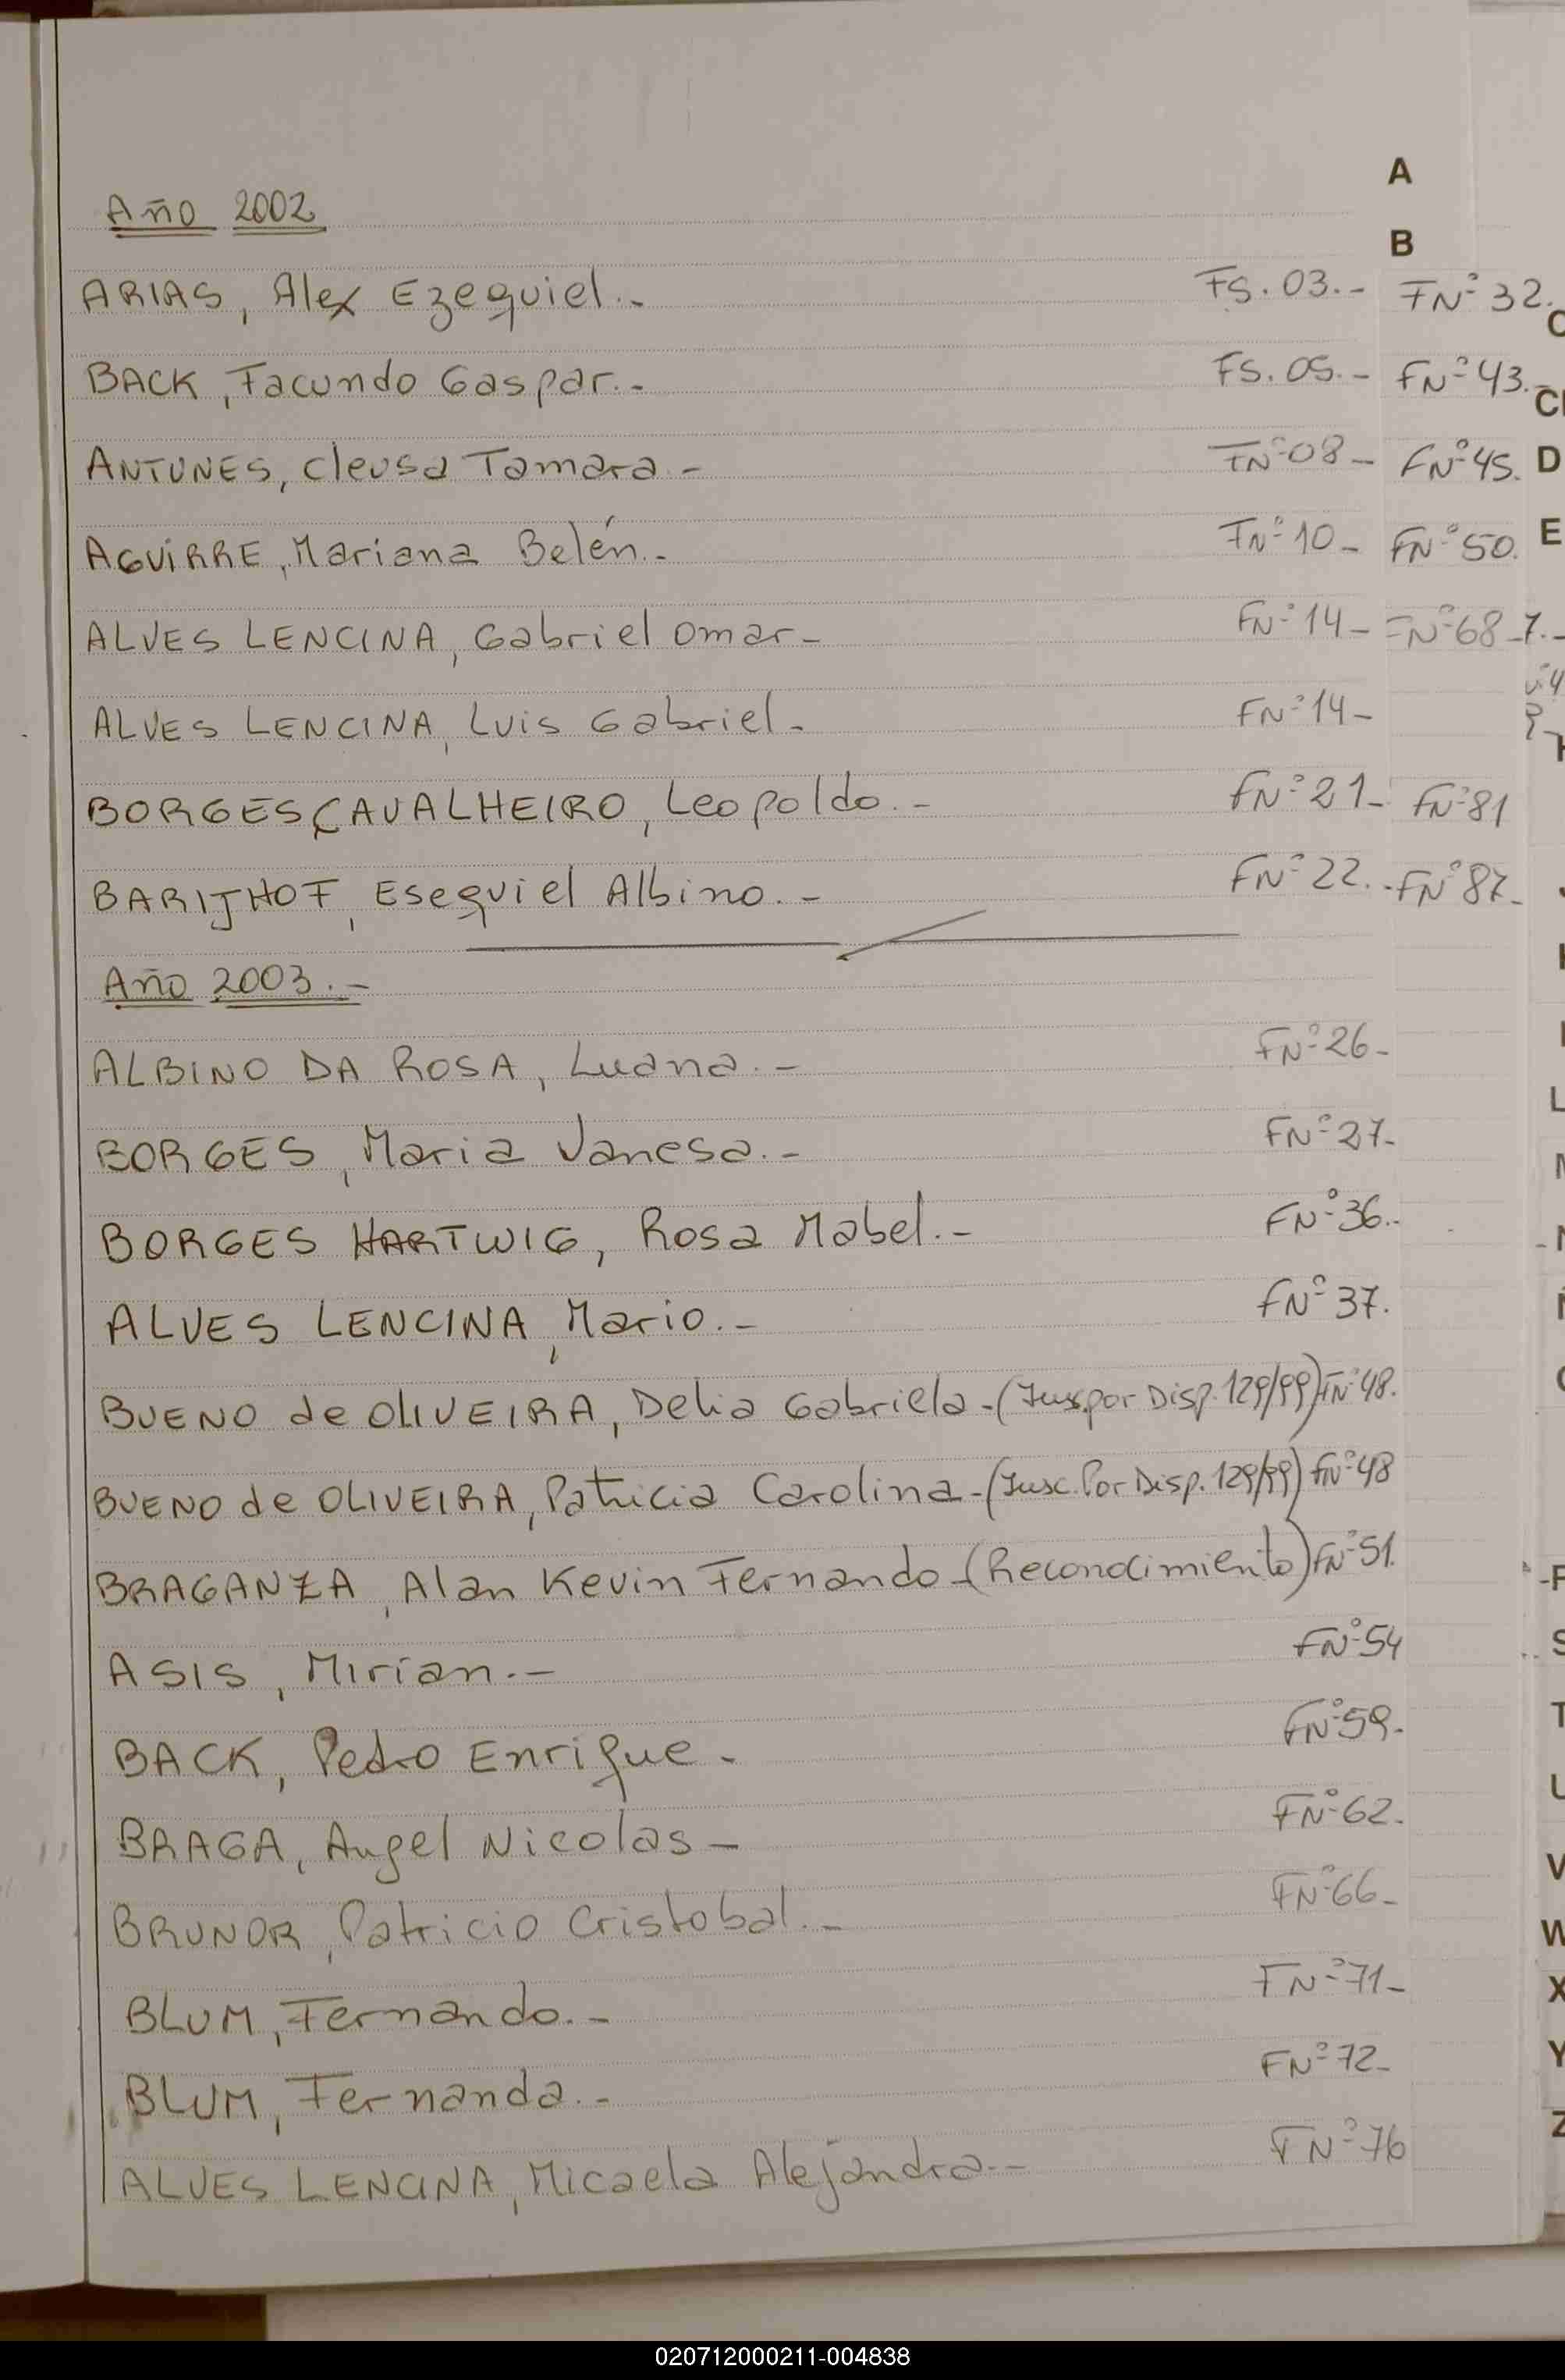 A
Año 2002
B
ARIAS, Alex Ezequiel.- FS.03.- FNº 32.
C
BACK, Facundo Gaspar.- FS.05.- FNº 43.-
D
ANTUNES, Cleusa Tamara.- FNº 08- FNº 45.
E
AGUIRRE, Mariana Belén.- FNº 10- FNº 50.
ALVES LENCINA, Gabriel Omar- FNº 14- FNº 68-7.-
ALVES LENCINA, Luis Gabriel- FNº 14-
BORGES CAVALHEIRO, Leopoldo.- FNº 21- FNº 81
BARIJHOF, Esequiel Albino.- FNº 22.- FNº 87-
Año 2003.-
ALBINO DA ROSA, Luana.- FNº 26-
BORGES, Maria Vanesa.- FNº 27-
BORGES HARTWIG, Rosa Mabel.- FNº 36.-
ALVES LENCINA, Mario.- FNº 37.
BUENO de OLIVEIRA, Delia Gabriela-(Insc.por Disp.129/99) FNº 48.
BUENO de OLIVEIRA, Patricia Carolina-(Insc.Por Disp.129/99) FNº 48
BRAGANZA, Alan Kevin Fernando-(Reconocimiento) FNº 51.
ASIS, Mirian.- FNº 54
S
BACK, Pedro Enrique- FNº 59-
T
BRAGA, Angel Nicolas- FNº 62-
V
BRUNOR, Patricio Cristobal.- FNº 66-
W
BLUM, Fernando.- FNº 71-
X
BLUM, Fernanda.- FNº 72-
Y
ALVES LENCINA, Micaela Alejandra.- FNº 76
Z
020712000211-004838